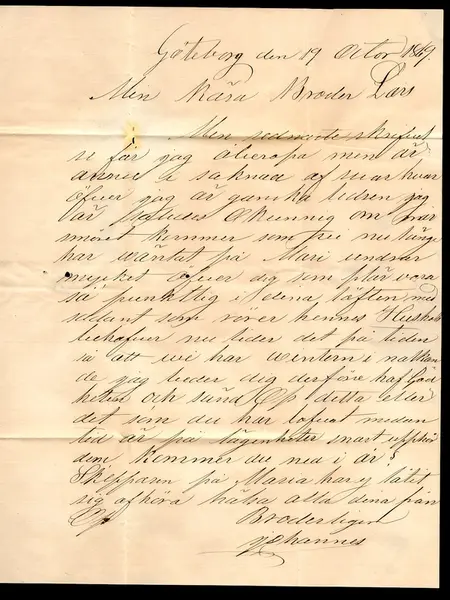 Göteborg den 19 Octor 1869.
Min Kära Broder Lars
Min sednaste skrifvel
se får jag åberopa men är
ännu i saknad af svar hvar
öfver jag är ganska ledsen jag
är således okunnig om när
smöret kommer som vi nu länge
har wäntat på Mari undrar
mycket öfver dig som plär vara
så punktlig i dina löften med
sådant som rörer hennes Hushåll
behöfver nu lider det på tiden
så att wi har wintern i nalkan
de jag beder dig derföre haf God
heten och sänd Op detta eller
det som du har lofvat medan
tid är på lägenheter snart upphör
dem kommer du ned i år?
Skepparn på Maria har ej låtit
sig afhöra hälsa alla dina från
Broderligen
Johannes